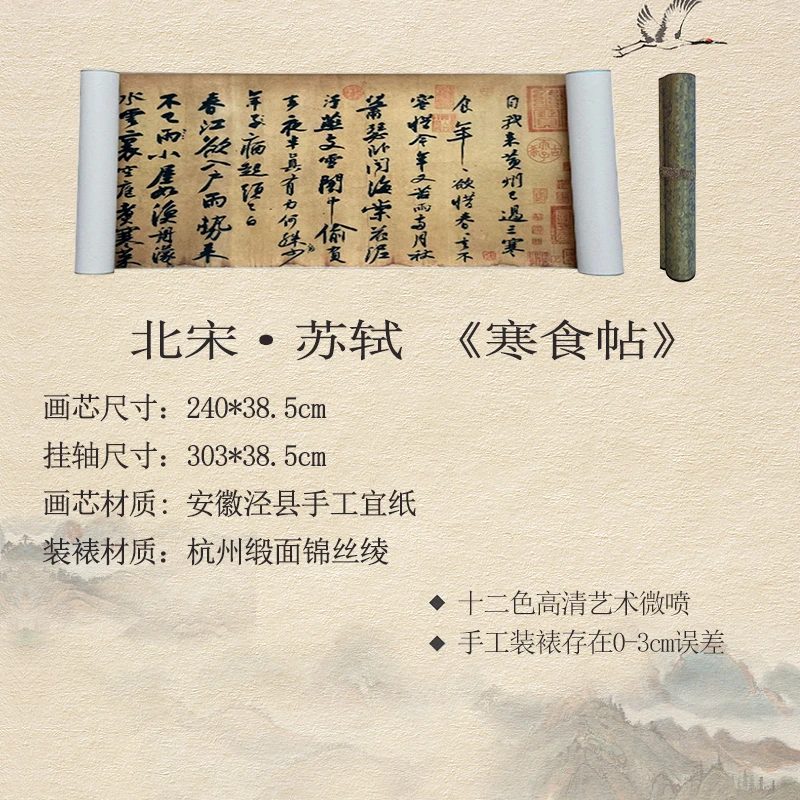 自我來黃州已過三寒
食年〻欲惜春〻去不
容惜今年又苦雨兩月秋
蕭瑟臥聞海棠花泥
汙燕支雪闇中偷負
去夜半真有力何殊少
年子病起頭已白
春江欲入戶雨勢來
不已雨小屋如漁舟濛〻
水雲裏空庖煮寒菜
北宋·苏轼 《寒食帖》
画芯尺寸：240*38.5cm
挂轴尺寸：303*38.5cm
画芯材质：安徽泾县手工宜纸
装裱材质：杭州缎面锦丝绫
◆ 十二色高清艺术微喷
◆ 手工装裱存在0-3cm误差